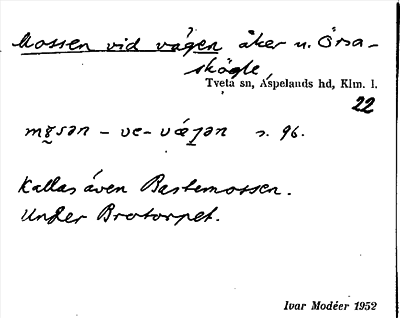 Mossen vid vägen åker u. Örsa-
skögle,
Tveta sn, Aspelands hd, Klm. l.
22
– ve – s. 96.
Kallas även Bastemossen.
Under Brotorpet.
Ivar Modéer 1952